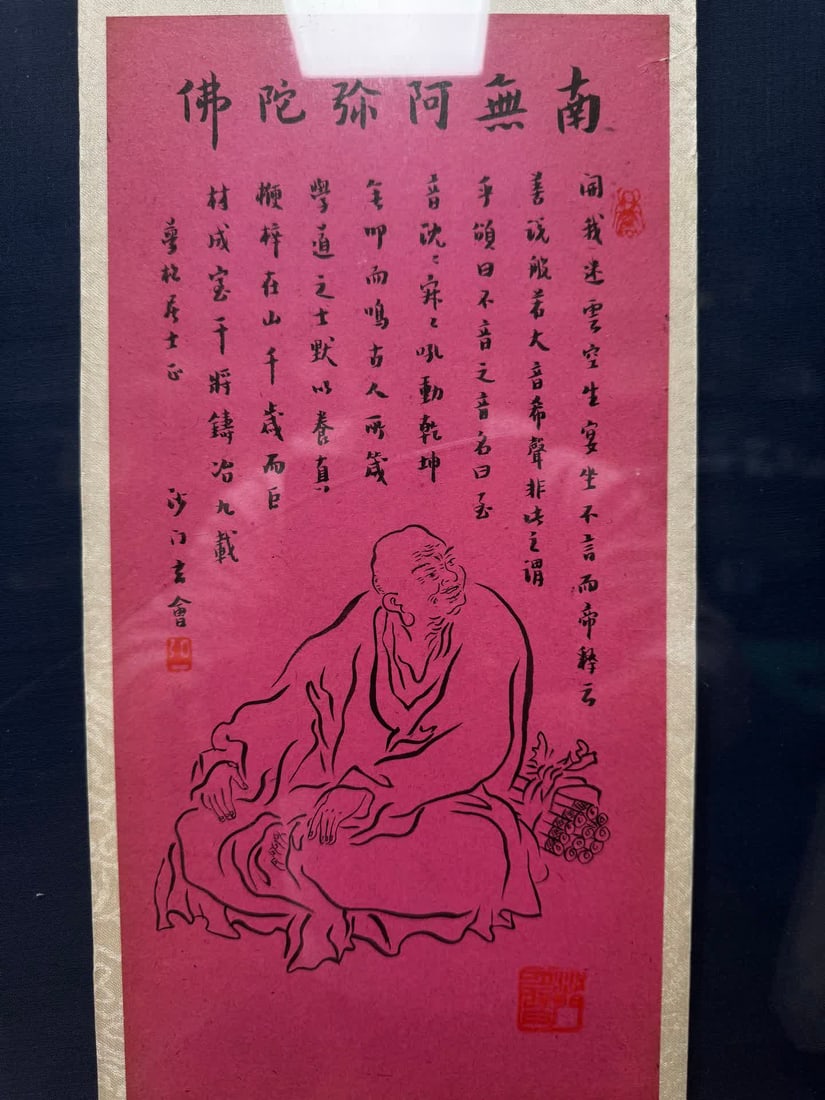 南無阿彌陀佛
開我迷雲空生宴坐不言而帝釋云
善说般若大音希聲非此之谓
乎頌曰不音之音名曰至
音沈〻寂〻吼動乾坤
金叩而鳴古人所箴
學道之士默以養真
楩梓在山千歲而巨
材成宝干將鑄冶九載
居士正
沙门玄會